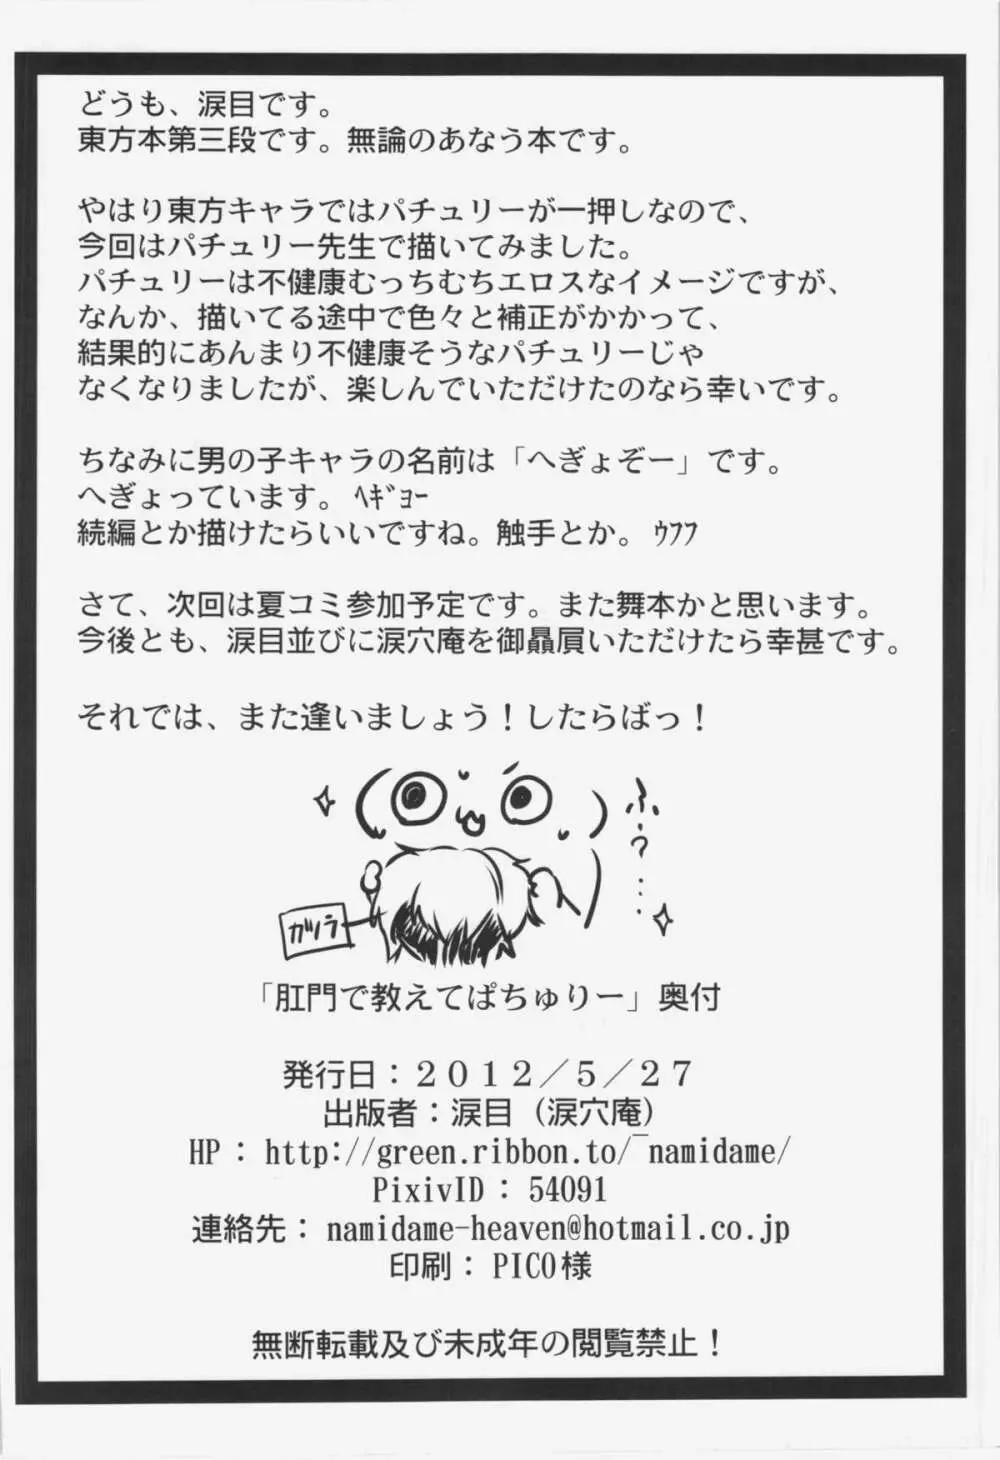 どうも、涙目です。
東方本第三段です。無論のあなう本です。
やはり東方キャラではパチュリーが一押しなので、
今回はパチュリー先生で描いてみました。
パチュリーは不健康むっちむちエロスなイメージですが、
なんか、描いてる途中で色々と補正がかかって、
結果的にあんまり不健康そうなパチュリーじゃ
なくなりましたが、楽しんでいただけたのなら幸いです。
ちなみに男の子キャラの名前は「へぎょぞー」です。
へぎょっています。ﾍｷﾞｮｰ
続編とか描けたらいいですね。触手とか。ｳﾌﾌ
さて、次回は夏コミ参加予定です。また舞本かと思います。
今後とも、涙目並びに涙穴庵を御贔屓いただけたら幸甚です。
それでは、また逢いましょう！したらばっ！
ふぅ…
カツラ
「肛門で教えてぱちゅりー」奥付
発行日：２０１２／５／２７
出版者：涙目（涙穴庵）
HP：http://green.ribbon.to/~namidame/
PixivID：54091
連絡先：namidame-heaven@hotmail.co.jp
印刷：PICO様
無断転載及び未成年の閲覧禁止！